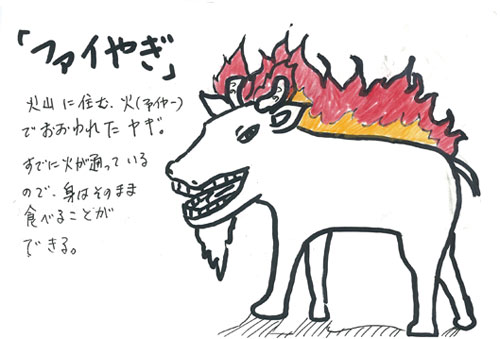 「ファイやぎ」
火山に住む、火(ファイヤー)
でおおわれたヤギ。
すでに火が通っている
ので、身はそのまま
食べることが
できる。